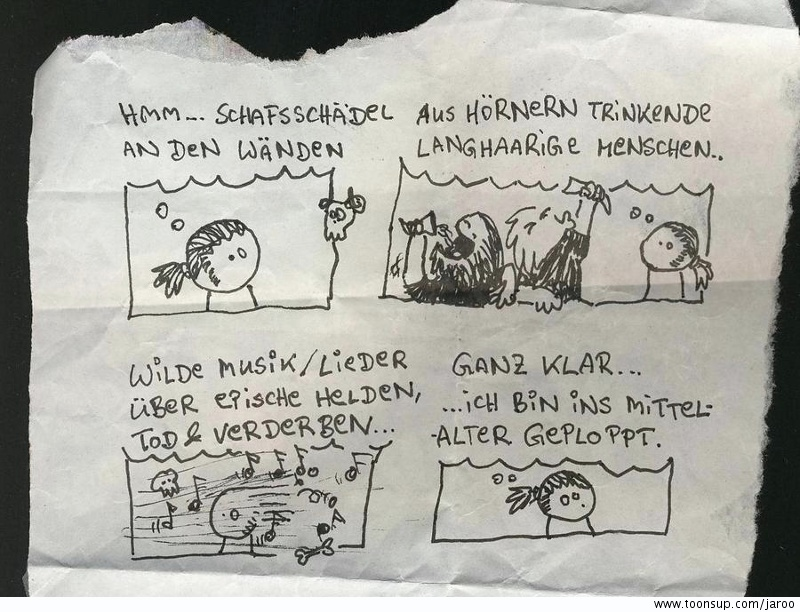 HMM... SCHAFSSCHÄDEL
AN DEN WÄNDEN
AUS HÖRNERN TRINKENDE
LANGHAARIGE MENSCHEN..
WILDE MUSIK/LIEDER
ÜBER EPISCHE HELDEN,
TOD & VERDERBEN...
GANZ KLAR...
...ICH BIN INS MITTEL-
-ALTER GEPLOPPT.
www.toonsup.com/jaroo